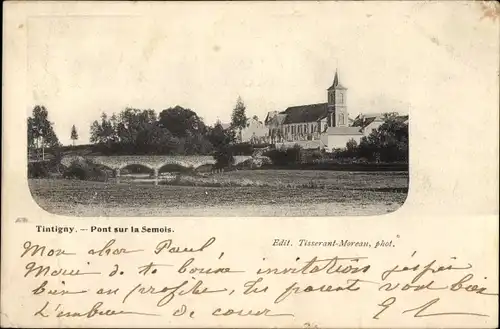 Tintigny. - Pont sur la Semois.
Edit. Tisserant-Moreau, phot.
Mon cher Paul
Merci de ta bonne invitation j'espère
bien en profiter, tes parents vont bien
t'embrasse de cœur